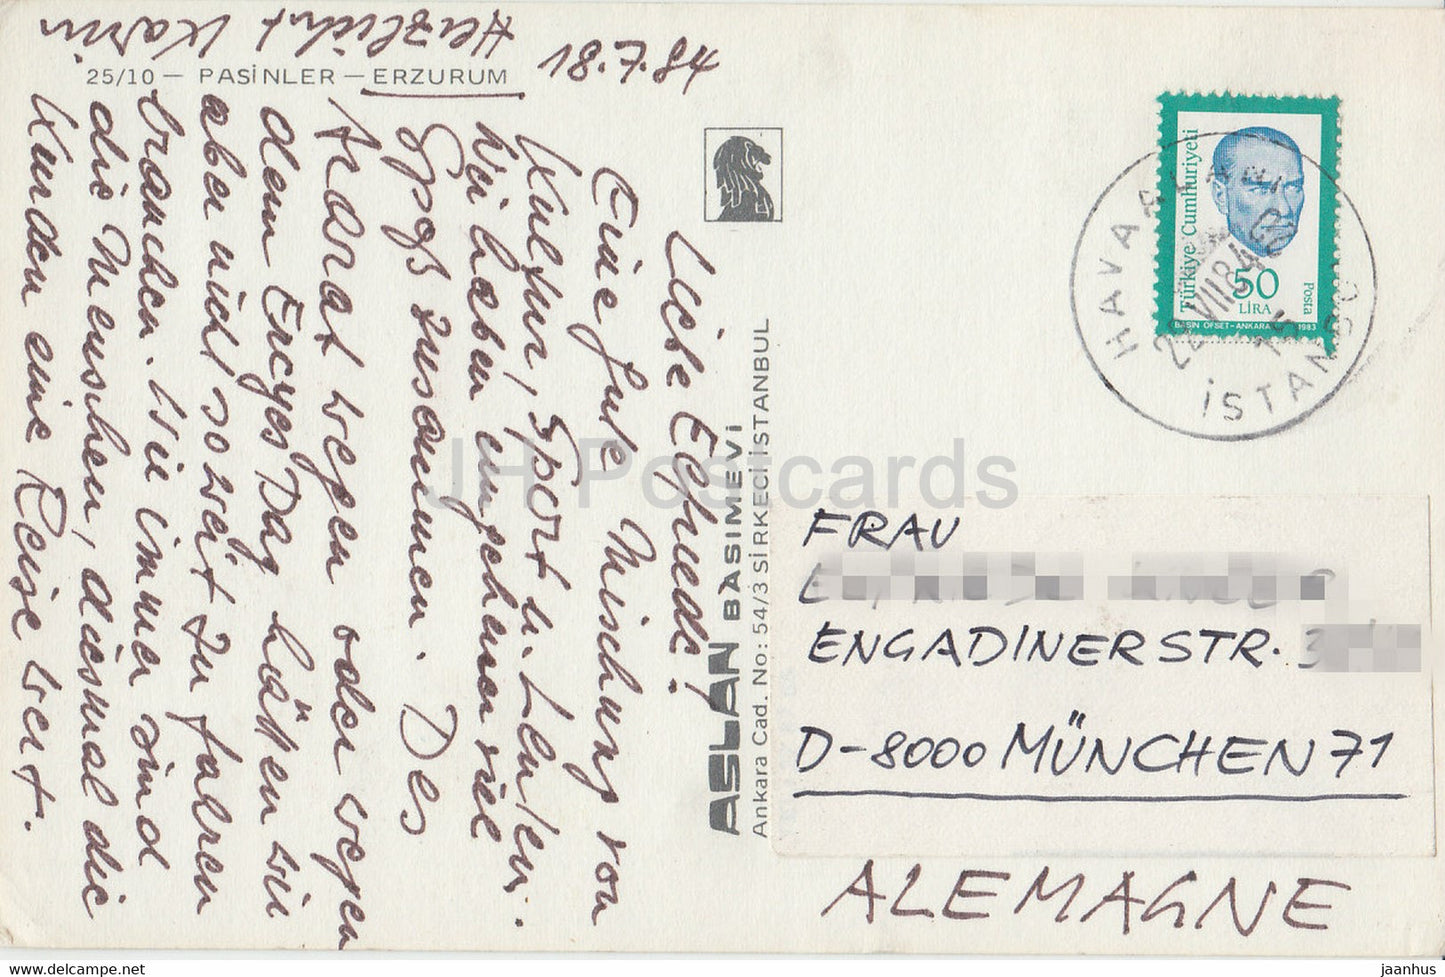 25/10 — PASİNLER — ERZURUM
18.7.84
Liebe Elfriede!
Eine gute Mischung von
Kultur, Sport u. Leuten.
Wir haben inzwischen viel
Spaß zusammen. Des
Ararat wegen oder wegen
dem Ercyes Dag hätten wir
aber nicht so weit zu fahren
brauchen. Wie immer sind
die Menschen, diesmal die
Kurden eine Reise wert.
Herzlichst Karin
ASLAN BASIMEVİ
Ankara Cad. No: 54/3 SİRKECİ İSTANBUL
Türkiye Cumhuriyeti
50
LİRA
Posta
BASIN OFSET - ANKARA 1983
HAVA
22 VII 84
15
İSTANBUL
FRAU
ENGADINERSTR. 3
D-8000 MÜNCHEN 71
ALEMAGNE
JH Postcards
www.delcampe.net
jaanhus